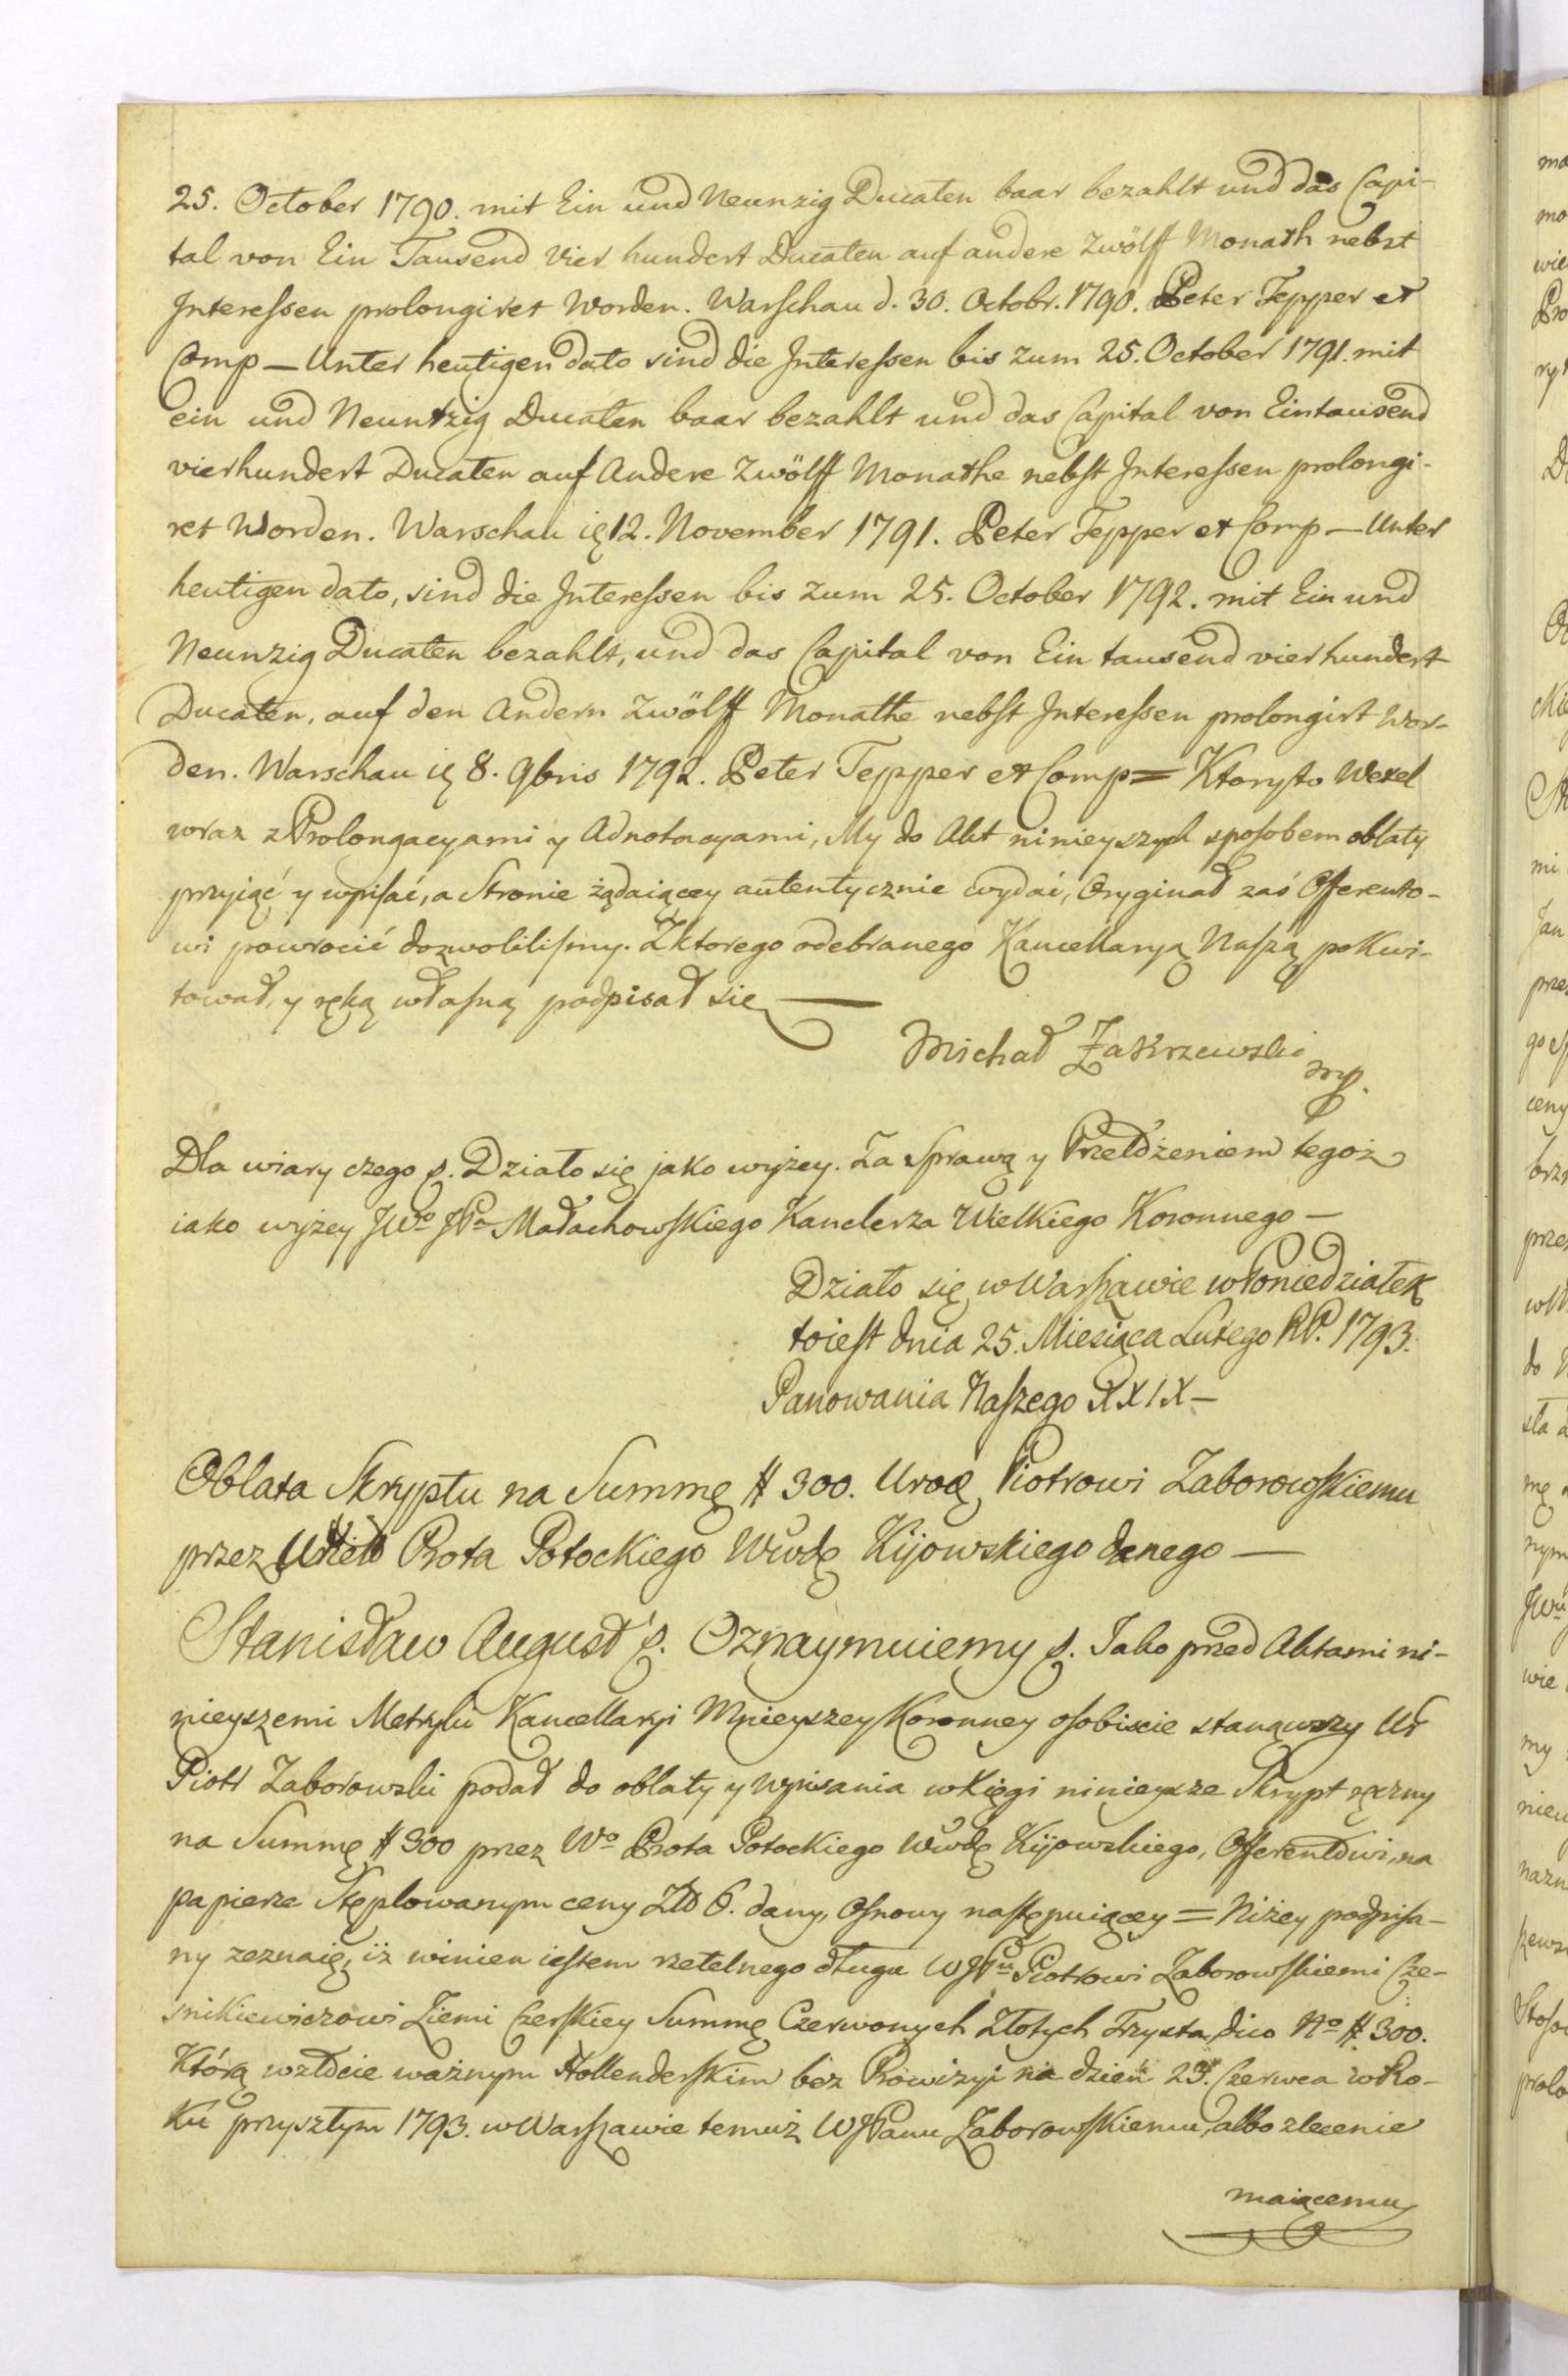 25. October 1790. mit Ein und Neunzig Ducaten baar bezahlt und das Capi-
tal von Ein Tausend Vier hundert Ducaten auf andere Zwölff Monath nebst
Interessen prolongiret Worden. Warschau d. 30. Octobr. 1790. Peter Tepper et
Comp — Unter heutigen dato sind die Interessen bis zum 25. October 1791. mit
ein und Neuntzig Ducaten baar bezahlt und das Capital von Eintausend
vierhundert Ducaten auf Andere Zwölff Monathe nebst Interessen prolongi-
ret Worden. Warschau 12. November 1791. Peter Tepper et Comp — Unter
heutigen dato, sind die Interessen bis zum 25. October 1792. mit Ein und
Neunzig Ducaten bezahlt, und das Capital von Ein tausend vierhundert
Ducaten, auf den Andern Zwölff Monathe nebst Interessen prolongirt Wor-
den. Warschau 8. 9bris 1792. Peter Tepper et Comp = Ktorysto Wexel
wraz z Prolongacyami y Adnotacyami, My do Akt ninieyszych sposobem oblaty
przyiąć y wpisać, a Stronie żądaiącey autentycznie wydać, Oryginał zaś Offerento-
wi powrocić dozwolilismy. Z ktorego odebranego Kancellaryą Naszą pokwi-
tował, y ręką własną podpisał się —
Michał Zakrzewski mp.
Dla wiary czego p. Działo się jako wyżey. Za Sprawą y Przełożeniem tegoż
iako wyżey JWo JPa Małachowskiego Kanclerza Wielkiego Koronnego —
Działo się w Warszawie w Poniedziałek
toiest dnia 25. Miesiąca Lutego RP. 1793.
Panowania Naszego XXIX —
Oblata Skryptu na Summę # 300. Urod Piotrowi Zaborowskiemu
przez Prota Potockiego Wwdę Kijowskiego danego —
Stanisław August p. Oznaymuiemy p. Iako przed Aktami ni-
nieyszemi Metryki Kancellaryi Mnieyszey Koronney osobiscie stanąwszy Ur
Piotr Zaborowski podał do oblaty y wpisania w Xięgi ninieysze Skrypt ręczny
na Summę # 300 przez Wo Prota Potockiego Wwdę Kijowskiego, Offerentowi, na
papierze Stęplowanym ceny Zło 6. dany, Osnowy następuiącey = Niżey podpisa-
ny zeznaię, iż winien iestem rzetelnego długu WJPu Piotrowi Zaborowskiemi Cze-
snikiewiczowi Ziemi Czerskiey Summę Czerwonych Złotych Trzysta, dico No # 300.
Którą w złocie ważnym Hollenderskim bez Prowizyi na dzień 23. Czerwca w Ro-
ku przyszłym 1793. w Warszawie temuż WJPanu Zaborowskiemu, albo zlecenie
maiącemu